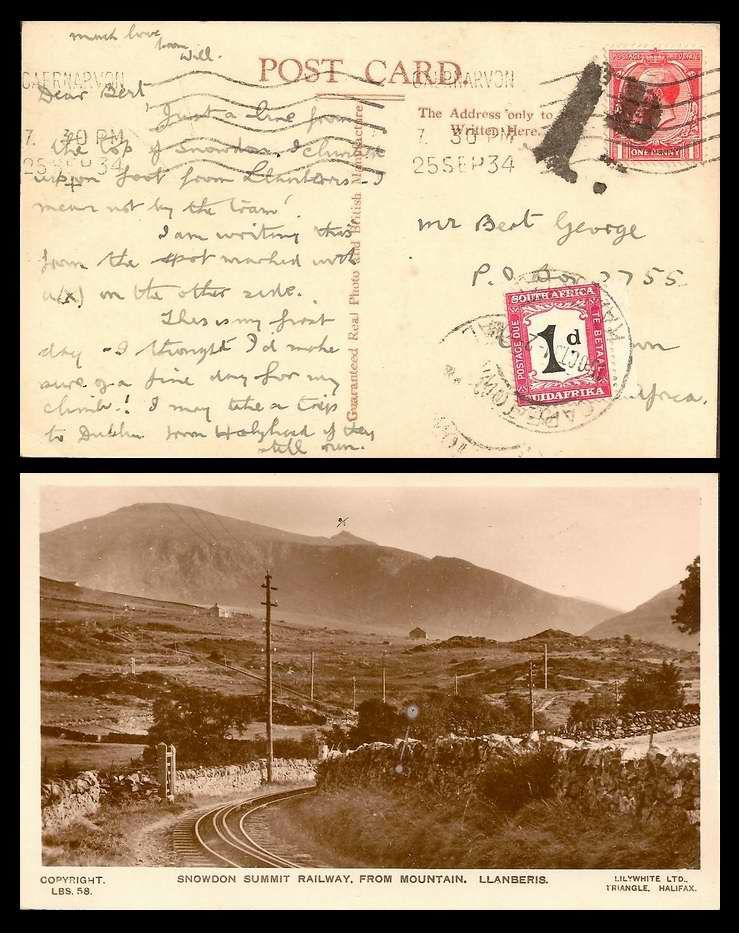 much love
from
Will.
POST CARD.
CAERNARVON
7. 30 PM
25 SEP 34
CAERNARVON
7. 30 PM
25 SEP 34
The Address only to
Written Here.
Guaranteed Real Photo and British Manufacture
ONE PENNY
Dear Bert
Just a line from
the top of Snowdon. I climbed
up on foot from Llanberis - I
mean not by the tram!
I am writing this
from the spot marked with
a (x) on the other side.
This is my first
day - I thought I'd make
sure of a fine day for my
climb! I may take a trip
to Dublin from Holyhead if they
still run.
Mr Bert George
P.O. Box 3755
Africa.
SOUTH AFRICA
POSTAGE DUE
TE BETAAL
1d
SUIDAFRIKA
CAPE TOWN
COPYRIGHT.
LBS. 58.
SNOWDON SUMMIT RAILWAY, FROM MOUNTAIN. LLANBERIS.
LILYWHITE LTD.,
TRIANGLE, HALIFAX.